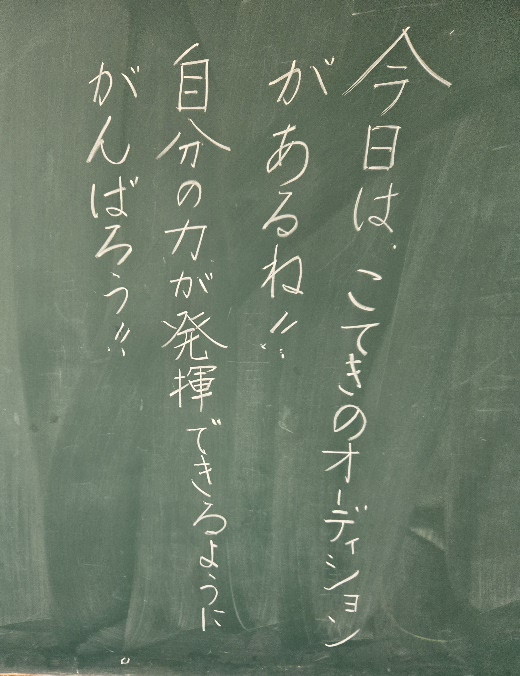 今日は、こてきのオーディション
があるね!!
自分の力が発揮できるように
がんばろう!!